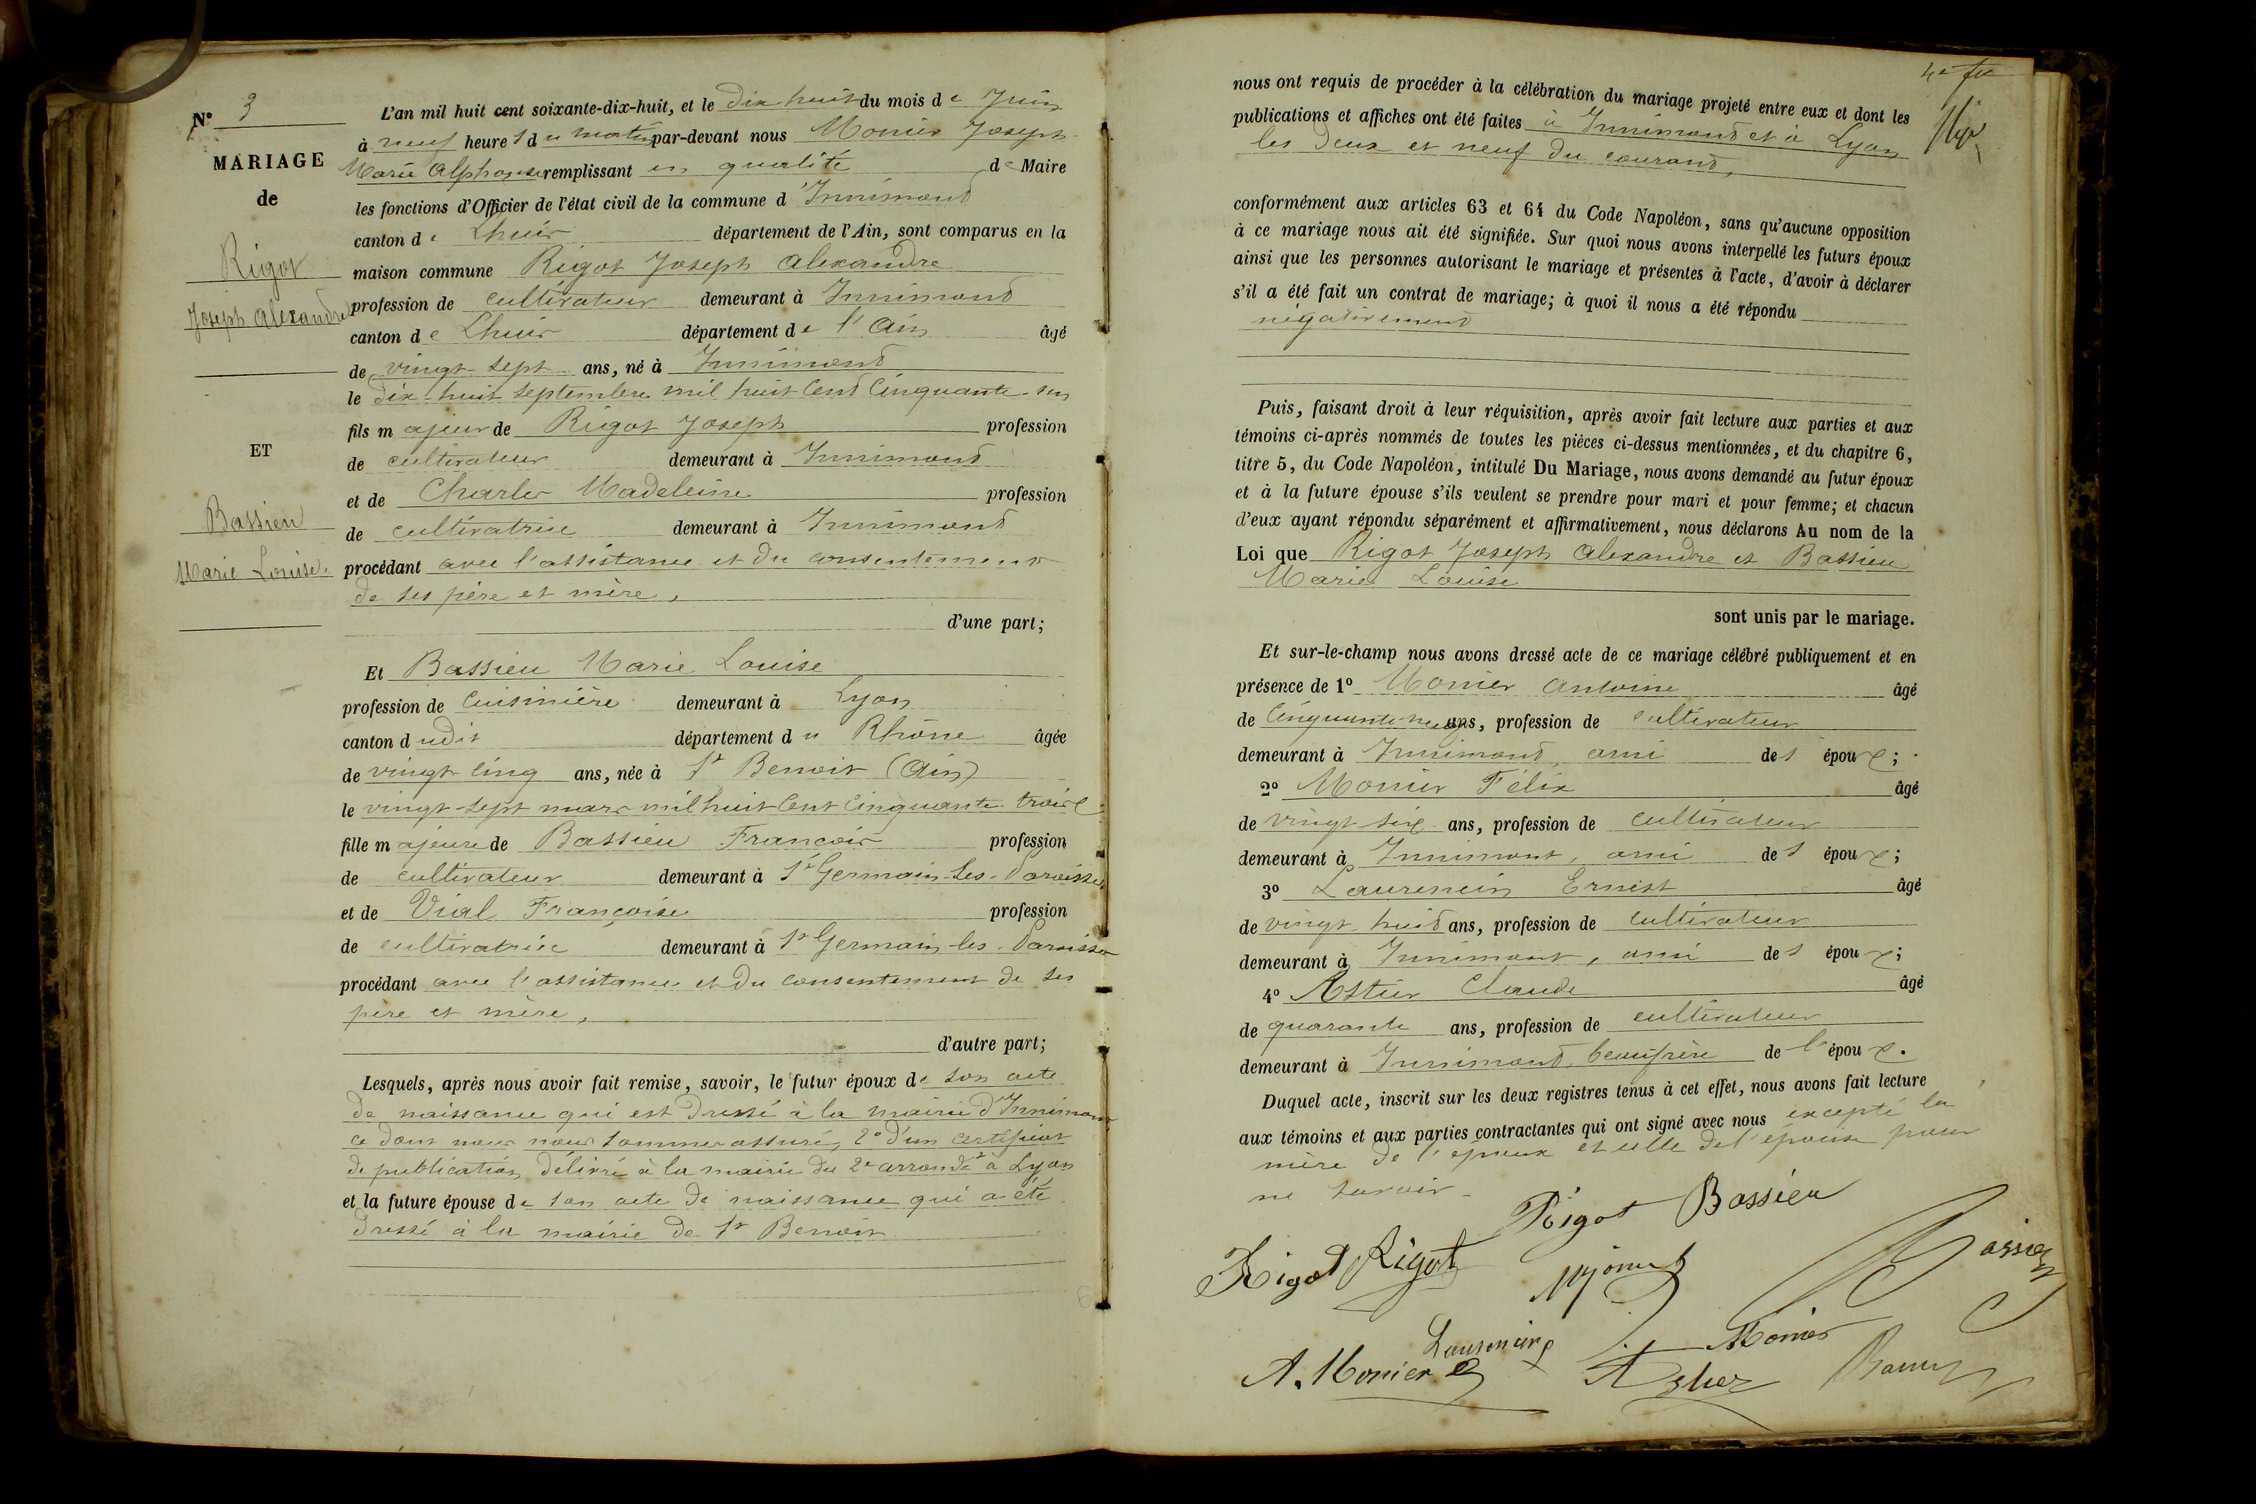 N° 3
MARIAGE
de
Rigot
Joseph Alexandre
ET
Bassieu
Marie Louise.
L'an mil huit cent soixante-dix-huit, et le dix huit du mois de Juin
à neuf heures du matin par-devant nous Monier Joseph
Marie Alphonse remplissant en qualité de Maire
les fonctions d'Officier de l'état civil de la commune d'Innimond
canton de Lhuis département de l'Ain, sont comparus en la
maison commune Rigot Joseph Alexandre
profession de cultivateur demeurant à Innimond
canton de Lhuis département de l'Ain âgé
de vingt-sept ans, né à Innimond
le dix-huit septembre mil huit cent cinquante-un
fils majeur de Rigot Joseph profession
de cultivateur demeurant à Innimond
et de Charles Madeleine profession
de cultivatrice demeurant à Innimond
procédant avec l'assistance et du consentement
de ses père et mère,
d'une part;
Et Bassieu Marie Louise
profession de cuisinière demeurant à Lyon
canton dudit département du Rhône âgée
de vingt cinq ans, née à St Benoit (Ain)
le vingt-sept mars mil huit cent cinquante-trois
fille majeure de Bassieu François profession
de cultivateur demeurant à St Germain-les-Paroisses
et de Vial Françoise profession
de cultivatrice demeurant à St Germain-les-Paroisses
procédant avec l'assistance et du consentement de ses
père et mère,
d'autre part;
Lesquels, après nous avoir fait remise, savoir, le futur époux de son acte
de naissance qui est dressé à la mairie d'Innimond
ce dont nous nous sommes assuré, 2° d'un certificat
de publication délivré à la mairie du 2e arrondt à Lyon
et la future épouse de son acte de naissance qui a été
dressé à la mairie de St Benoit
nous ont requis de procéder à la célébration du mariage projeté entre eux et dont les
publications et affiches ont été faites à Innimond et à Lyon
les deux et neuf du courant,
conformément aux articles 63 et 64 du Code Napoléon, sans qu'aucune opposition
à ce mariage nous ait été signifiée. Sur quoi nous avons interpellé les futurs époux
ainsi que les personnes autorisant le mariage et présentes à l'acte, d'avoir à déclarer
s'il a été fait un contrat de mariage; à quoi il nous a été répondu
négativement
Puis, faisant droit à leur réquisition, après avoir fait lecture aux parties et aux
témoins ci-après nommés de toutes les pièces ci-dessus mentionnées, et du chapitre 6,
titre 5, du Code Napoléon, intitulé Du Mariage, nous avons demandé au futur époux
et à la future épouse s'ils veulent se prendre pour mari et pour femme; et chacun
d'eux ayant répondu séparément et affirmativement, nous déclarons Au nom de la
Loi que Rigot Joseph Alexandre et Bassieu
Marie Louise
sont unis par le mariage.
Et sur-le-champ nous avons dressé acte de ce mariage célébré publiquement et en
présence de 1° Monier Antoine âgé
de cinquante-neuf ans, profession de cultivateur
demeurant à Innimond, ami des époux;
2° Monier Félix âgé
de vingt six ans, profession de cultivateur
demeurant à Innimont, ami des époux;
3° Laurencin Ernest âgé
de vingt-huit ans, profession de cultivateur
demeurant à Innimont, ami des époux;
4° Astier Claude âgé
de quarante ans, profession de cultivateur
demeurant à Innimond, beaufrère de l'époux.
Duquel acte, inscrit sur les deux registres tenus à cet effet, nous avons fait lecture
aux témoins et aux parties contractantes qui ont signé avec nous excepté la
mère de l'époux et celle de l'épouse pour
ne savoir
Rigot Bassieu
Rigot Rigot Monier Bassieu
Laurencin Monier
A. Monier Astier